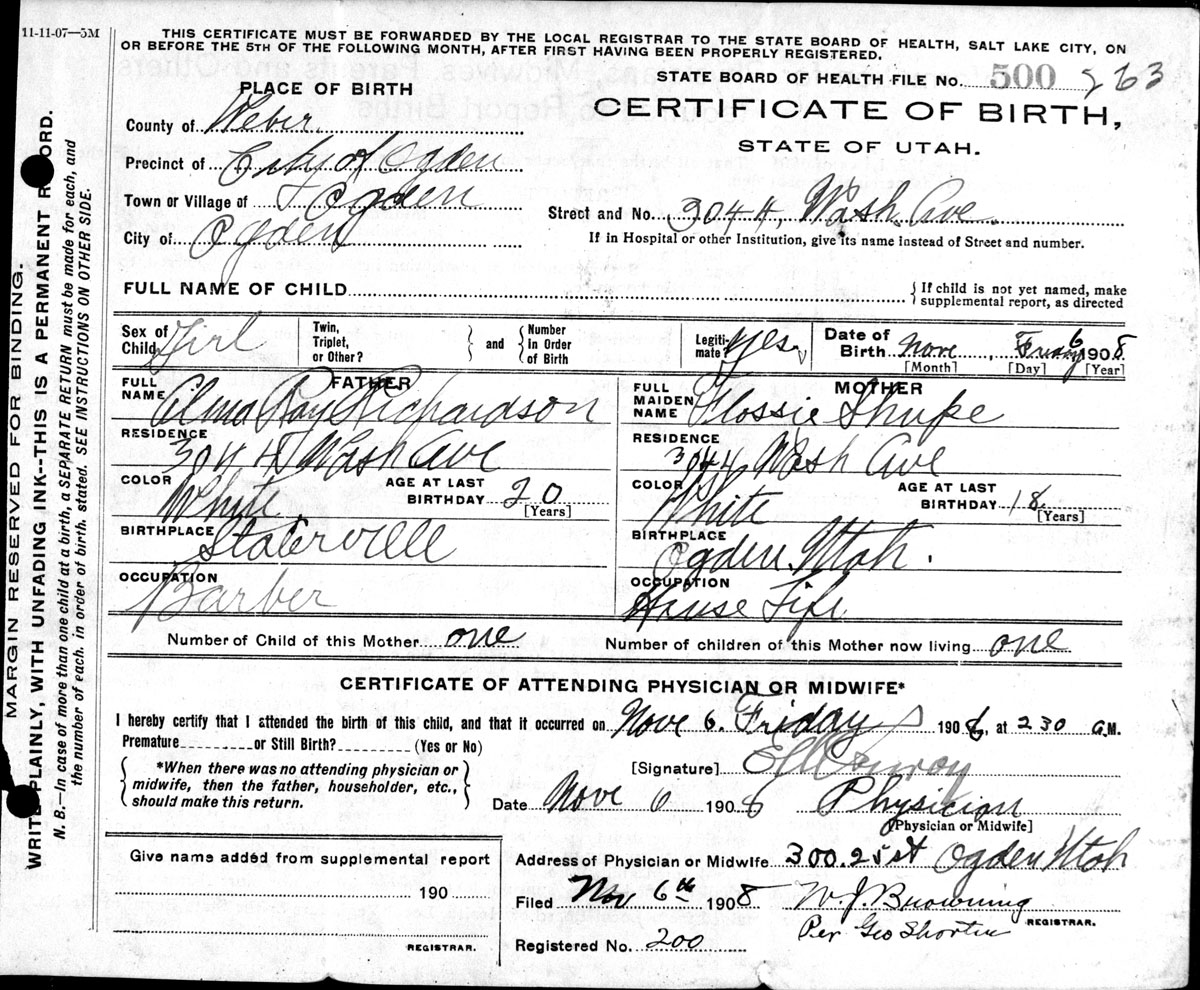 11-11-07—5M
THIS CERTIFICATE MUST BE FORWARDED BY THE LOCAL REGISTRAR TO THE STATE BOARD OF HEALTH, SALT LAKE CITY, ON
OR BEFORE THE 5TH OF THE FOLLOWING MONTH, AFTER FIRST HAVING BEEN PROPERLY REGISTERED.
STATE BOARD OF HEALTH FILE No. 500 263
PLACE OF BIRTH
CERTIFICATE OF BIRTH,
STATE OF UTAH.
County of Weber
Precinct of City of Ogden
Town or Village of Ogden
Street and No. 3044, Wash. Ave.
City of Ogden
If in Hospital or other Institution, give its name instead of Street and number.
FULL NAME OF CHILD
{ If child is not yet named, make
supplemental report, as directed
Sex of Child Girl
Twin, Triplet, or Other? } and { Number In Order of Birth
Legiti- mate? yes
Date of Birth Nove, Friday 6 1908
[Month] [Day] [Year]
FATHER
FULL NAME Alma Ray Richardson
MOTHER
FULL MAIDEN NAME Flossie Shupe
RESIDENCE 3044 Wash Ave
RESIDENCE 3044 Wash Ave
COLOR White
AGE AT LAST BIRTHDAY 20 [Years]
COLOR White
AGE AT LAST BIRTHDAY 18 [Years]
BIRTHPLACE Slaterville
BIRTHPLACE Ogden. Utah.
OCCUPATION Barber
OCCUPATION House Fife
Number of Child of this Mother one
Number of children of this Mother now living one
CERTIFICATE OF ATTENDING PHYSICIAN OR MIDWIFE*
I hereby certify that I attended the birth of this child, and that it occurred on Nove 6. Friday 1908, at 230 a M.
Premature or Still Birth? (Yes or No)
{ *When there was no attending physician or
midwife, then the father, householder, etc.,
should make this return. }
[Signature] Conroy
Date Nove 6 1908 Physician
[Physician or Midwife]
Give name added from supplemental report
190
REGISTRAR.
Address of Physician or Midwife 300. 25 st Ogden Utah
Filed Nov 6th 1908 W. J. Browning
REGISTRAR.
Per Geo Shorten
Registered No. 200
MARGIN RESERVED FOR BINDING.
WRITE PLAINLY, WITH UNFADING INK--THIS IS A PERMANENT RECORD.
N. B.—In case of more than one child at a birth, a SEPARATE RETURN must be made for each, and
the number of each, in order of birth, stated. SEE INSTRUCTIONS ON OTHER SIDE.